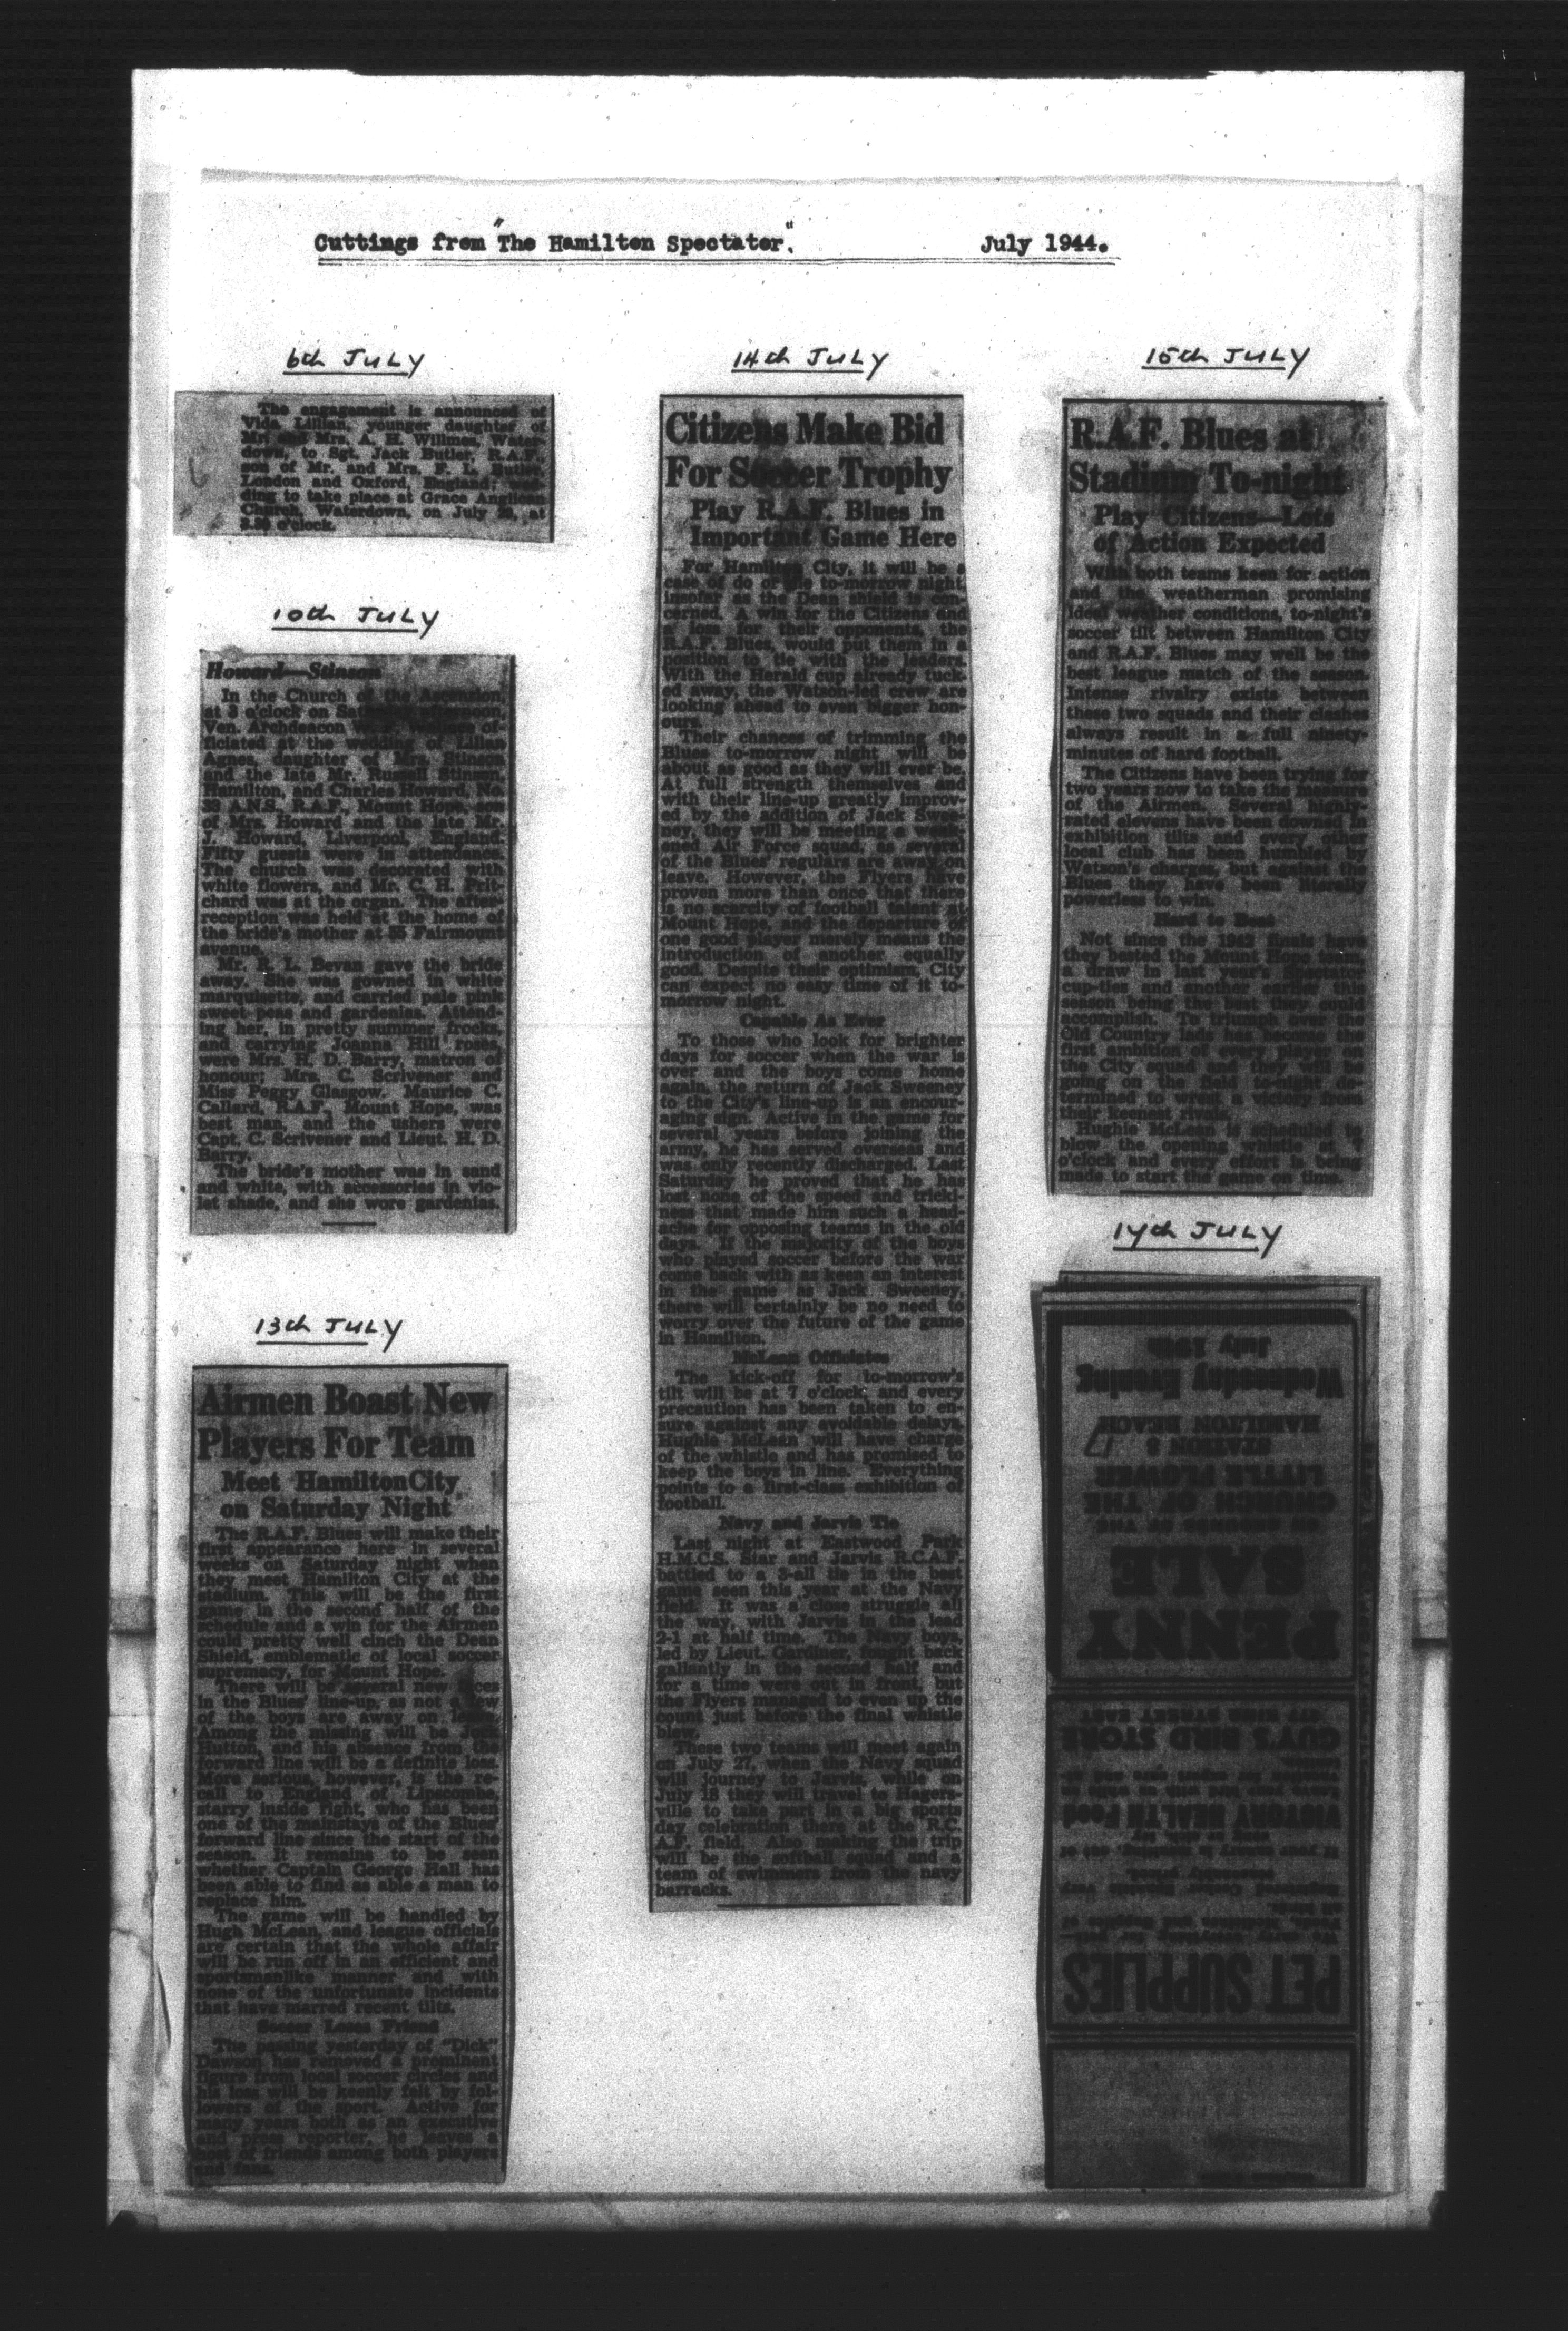 Cuttings from "The Hamilton Spectator". July 1944.
6th JULY
The engagement is announced of
Vida Lillian, younger daughter of
Mr. and Mrs. A. H. Willmes, Water-
down, to Sgt. Jack Butler, R.A.F.,
son of Mr. and Mrs. F. L. Butler,
London and Oxford, England; wed-
ding to take place at Grace Anglican
Church, Waterdown, on July at
o'clock.
10th JULY
Howard—Stinson
In the Church of the Ascension,
at 3 o'clock on Saturday afternoon,
Ven. Archdeacon of-
ficiated at the wedding of Lilian
Agnes, daughter of Mrs. Stinson
and the late Mr. Russell Stinson,
Hamilton, and Charles Howard, No.
33 A.N.S., R.A.F., Mount Hope, son
of Mrs. Howard and the late Mr.
J. Howard, Liverpool, England.
Fifty guests were in attendance.
The church was decorated with
white flowers, and Mr. C. H. Prit-
chard was at the organ. The after-
reception was held at the home of
the bride's mother at 55 Fairmount
avenue.
Mr. L. Bevan gave the bride
away. She was gowned in white
marquisette, and carried pale pink
sweet peas and gardenias. Attend-
ing her, in pretty summer frocks,
and carrying Joanna Hill roses,
were Mrs. H. D. Barry, matron of
honour; Mrs. C. Scrivener and
Miss Peggy Glasgow. Maurice C.
Callard, R.A.F., Mount Hope, was
best man, and the ushers were
Capt. C. Scrivener and Lieut. H. D.
Barry.
The bride's mother was in sand
and white, with accessories in vio-
let shade, and she wore gardenias.
13th JULY
Airmen Boast New
Players For Team
Meet Hamilton City
on Saturday Night
The R.A.F. Blues will make their
first appearance here in several
weeks on Saturday night when
they meet Hamilton City at the
stadium. This will be the first
game in the second half of the
schedule and a win for the Airmen
could pretty well cinch the Dean
Shield, emblematic of local soccer
supremacy, for Mount Hope.
There will be several new faces
in the Blues' line-up, as not a few
of the boys are away on leave.
Among the missing will be Jock
Hutton and his absence from the
forward line will be a definite loss.
More serious, however, is the re-
call to England of Lipscombe,
starry inside right, who has been
one of the mainstays of the Blues'
forward line since the start of the
season. It remains to be seen
whether Captain George Hall has
been able to find as able a man to
replace him.
The game will be handled by
Hugh McLean, and league officials
are certain that the whole affair
will be run off in an efficient and
sportsmanlike manner and with
none of the unfortunate incidents
that have marred recent tilts.
Soccer Loses Friend
The passing yesterday of "Dick"
Dawson has removed a prominent
figure from local soccer circles and
his loss will be keenly felt by fol-
lowers of the sport. Active for
many years both as an executive
and press reporter, he leaves a
host of friends among both players
and fans.
14th JULY
Citizens Make Bid
For Soccer Trophy
Play R.A.F. Blues in
Important Game Here
For Hamilton City, it will be a
case of do or die to-morrow night,
insofar as the Dean shield is con-
cerned. A win for the Citizens and
a loss for their opponents, the
R.A.F. Blues, would put them in a
position to tie with the leaders.
With the Herald cup already tuck-
ed away, the Watson-led crew are
looking ahead to even bigger hon-
ours.
Their chances of trimming the
Blues to-morrow night will be
about as good as they will ever be.
At full strength themselves and
with their line-up greatly improv-
ed by the addition of Jack Swee-
ney, they will be meeting a weak-
ened Air Force squad, as several
of the Blues' regulars are away on
leave. However, the Flyers have
proven more than once that there
is no scarcity of football talent at
Mount Hope, and the departure of
one good player merely means the
introduction of another equally
good. Despite their optimism, City
can expect no easy time of it to-
morrow night.
Capable As Ever
To those who look for brighter
days for soccer when the war is
over and the boys come home
again, the return of Jack Sweeney
to the City's line-up is an encour-
aging sign. Active in the game for
several years before joining the
army, he has served overseas and
was only recently discharged. Last
Saturday he proved that he has
lost none of the speed and tricki-
ness that made him such a head-
ache for opposing teams in the old
days. If the majority of the boys
who played soccer before the war
come back with as keen an interest
in the game as Jack Sweeney,
there will certainly be no need to
worry over the future of the game
in Hamilton.
McLean Officiates
The kick-off for to-morrow's
tilt will be at 7 o'clock, and every
precaution has been taken to en-
sure against any avoidable delays.
Hughie McLean will have charge
of the whistle and has promised to
keep the boys in line. Everything
points to a first-class exhibition of
football.
Navy and Jarvis Tie
Last night at Eastwood Park
H.M.C.S. Star and Jarvis R.C.A.F.
battled to a 3-all tie in the best
game seen this year at the Navy
field. It was a close struggle all
the way, with Jarvis in the lead
2-1 at half time. The Navy boys,
led by Lieut. Gardiner, fought back
gallantly in the second half and
for a time were out in front, but
the Flyers managed to even up the
count just before the final whistle
blew.
These two teams will meet again
on July 27, when the Navy squad
will journey to Jarvis, while on
July 18 they will travel to Hagers-
ville to take part in a big sports
day celebration there at the R.C.
A.F. field. Also making the trip
will be the softball squad and a
team of swimmers from the navy
barracks.
15th JULY
R.A.F. Blues at
Stadium To-night
Play Citizens—Lots
of Action Expected
With both teams keen for action
and the weatherman promising
ideal weather conditions, to-night's
soccer tilt between Hamilton City
and R.A.F. Blues may well be the
best league match of the season.
Intense rivalry exists between
these two squads and their clashes
always result in a full ninety-
minutes of hard football.
The Citizens have been trying for
two years now to take the measure
of the Airmen. Several highly-
rated elevens have been downed in
exhibition tilts and every other
local club has been humbled by
Watson's charges, but against the
Blues they have been literally
powerless to win.
Hard to Beat
Not since the 1942 finals have
they bested the Mount Hope team,
a draw in last year's Spectator
cup-ties and another earlier this
season being the best they could
accomplish. To triumph over the
Old Country lads has become the
first ambition of every player on
the City squad and they will be
going on the field to-night de-
termined to wrest a victory from
their keenest rivals.
Hughie McLean is scheduled to
blow the opening whistle at 7
o'clock and every effort is being
made to start the game on time.
17th JULY
PET SUPPLIES
VICTORY HEALTH Food
GUY'S BIRD STORE
KING STREET EAST
PENNY
SALE
ON GROUNDS OF THE
CHURCH OF THE
LITTLE FLOWER
STATION 8
HAMILTON BEACH
Wednesday Evening
July 19th